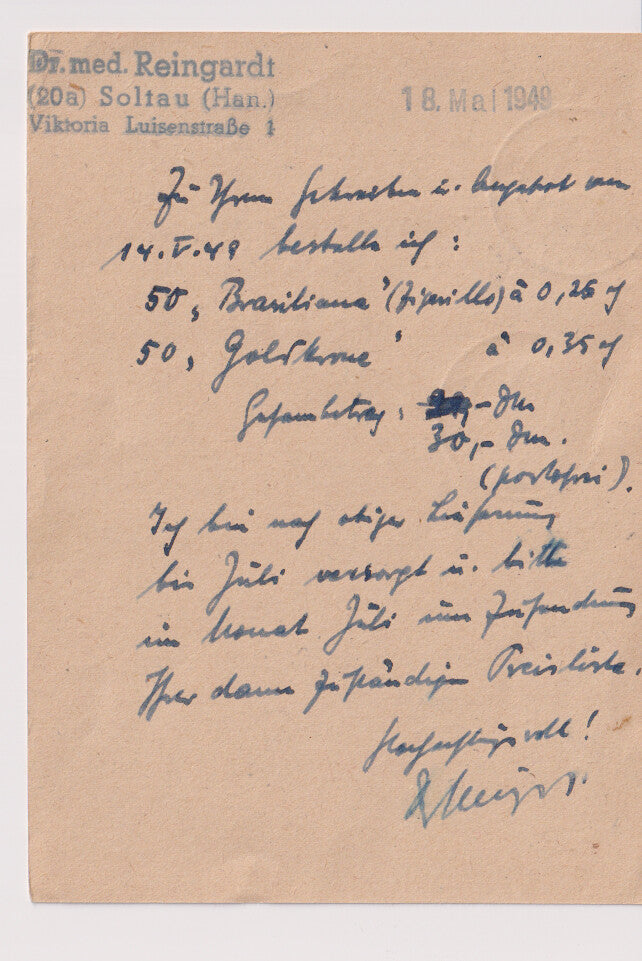 Dr. med. Reingardt
(20a) Soltau (Han.)
Viktoria Luisenstraße 1
18. Mai 1949
Zu Ihrem Schreiben u. Angebot vom
14.V.49 bestelle ich:
50 „Brasiliana" (Zigarillo) à 0,25
50 „Goldkrone" à 0,35
Gesamtbetrag: -Dm
30,- Dm.
(portofrei).
Ich bin nach obiger Lieferung
bis Juli versorgt u. bitte
im Monat Juli um Zusendung
Ihrer dann zuständigen Preisliste.
Hochachtungsvoll!